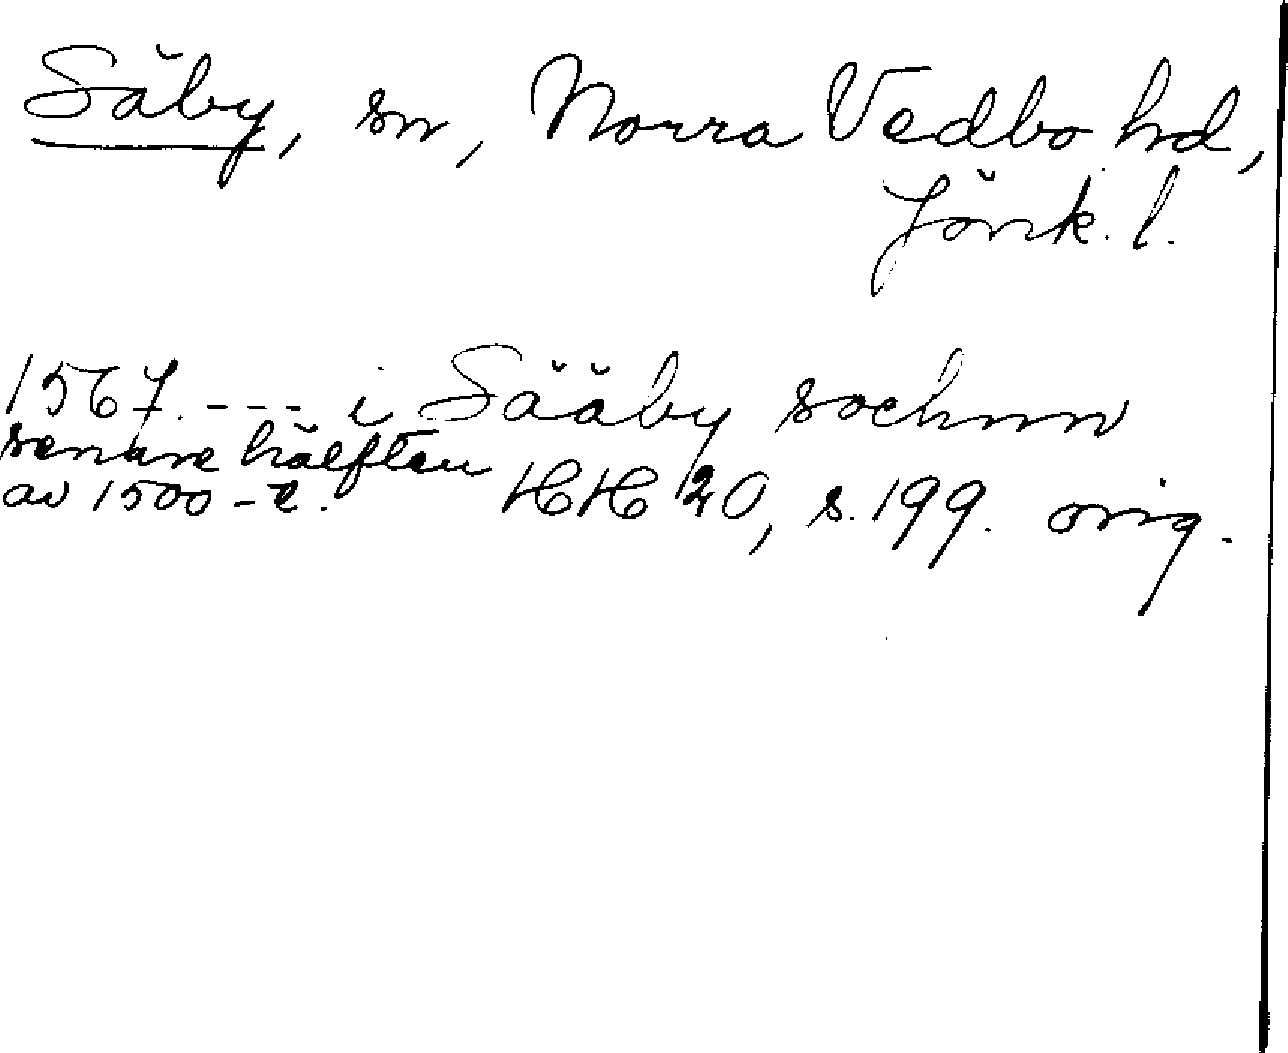 Säby, sn, Norra Vedbo hd,
Jönk. l.
1567. --- i Sääby sochnn
senare hälften
av 1500-t. HH 20, s. 199. orig.